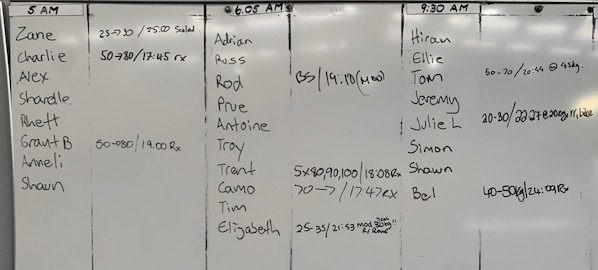 5 AM
Zane 25→30/25:00 Scaled
Charlie 50→80/17:45 rx
Alex
Shardle
Rhett
Grant B 50→80/19:00 Rx
Anneli
Shawn
6.05 AM
Adrian
Russ
Rod 85/19:10 (Mod)
Prue
Antoine
Troy
Trent 5x80,90,100/18:08 Rx
Camo 70→7/17:47 Rx
Tim
Elizabeth 25-35/21:53 mod 30kg!!
9:30 AM
Hiran
Ellie
Tom 50-70/20:44 @ 45kg
Jeremy
Julie L 20-30/22:27 @ 20kg
Simon
Shawn
Bel 40-50kg/24:09 Rx